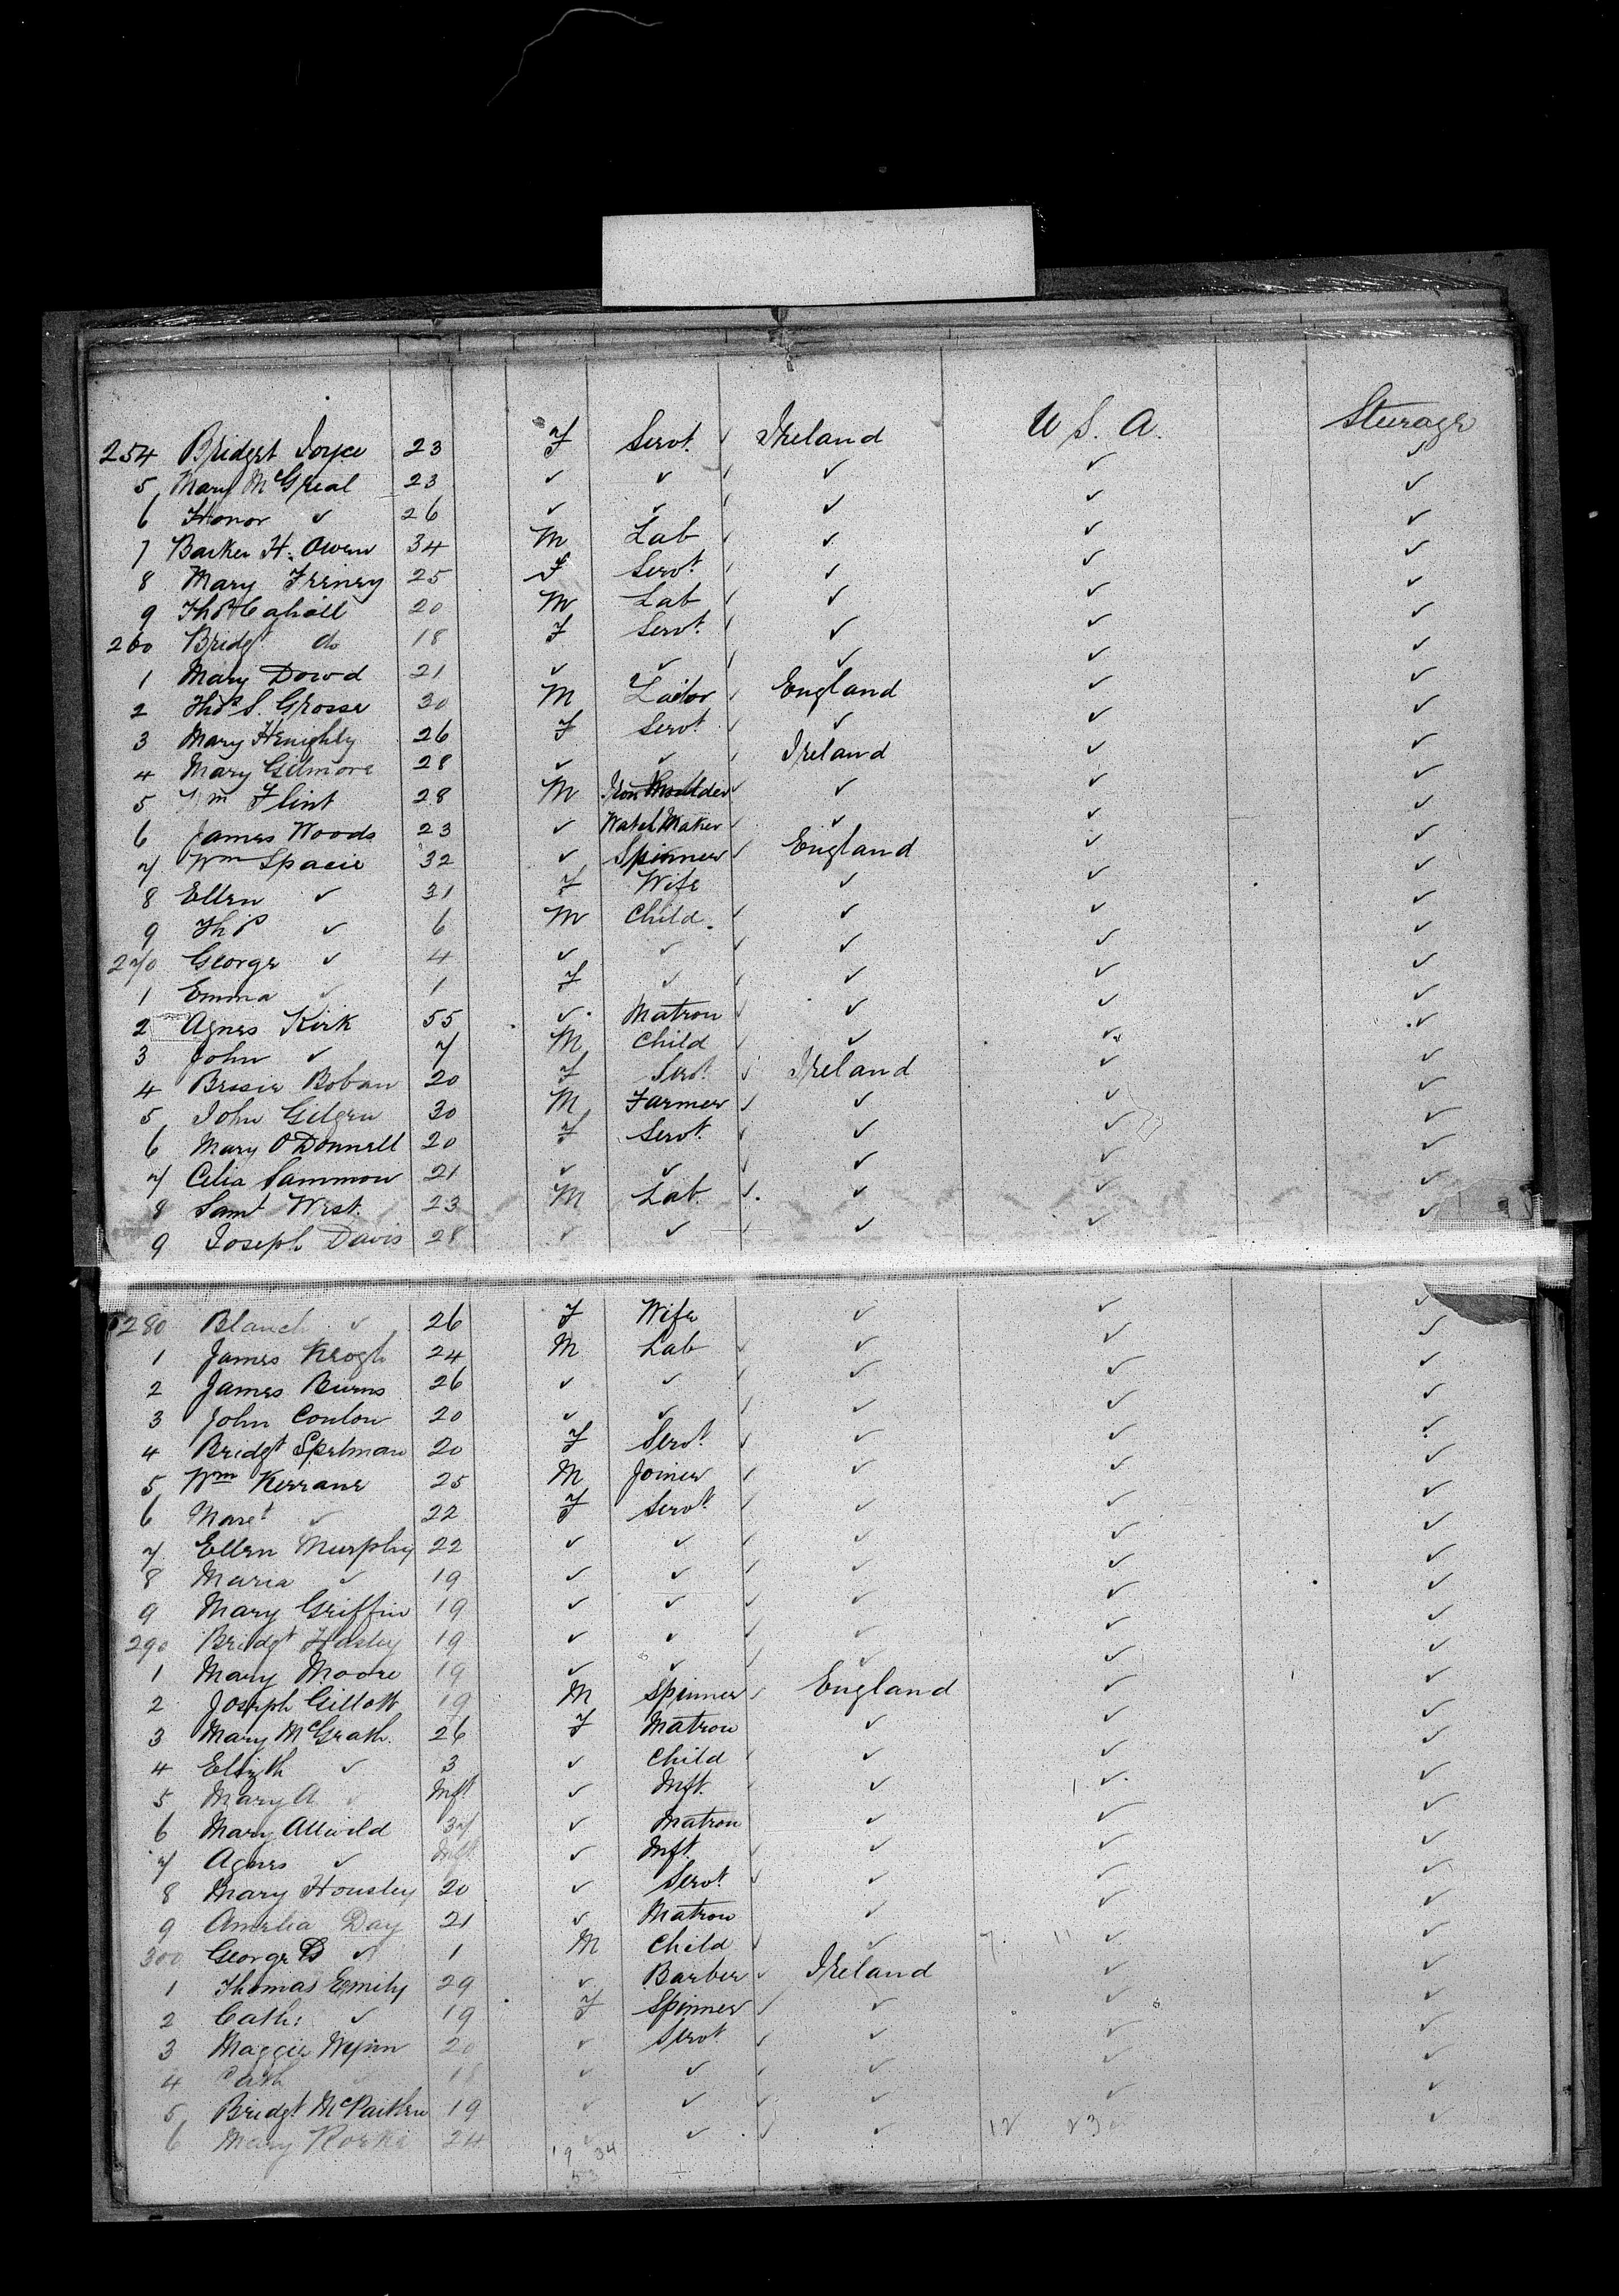 254 Bridget Joyce 23 F Servt. ✓ Ireland U S. A. Steerage
5 Mary McGreal 23 ✓ ✓ ✓ ✓ ✓ ✓
6 Honor ✓ 26 ✓ ✓ ✓ ✓ ✓ ✓
7 Barker H. Owen 34 M Lab ✓ ✓ ✓ ✓
8 Mary Feeney 25 F Servt. ✓ ✓ ✓ ✓
9 Thos Cahall 20 M Lab ✓ ✓ ✓ ✓
260 Bridgt do 18 F Servt. ✓ ✓ ✓ ✓
1 Mary Dowd 21 ✓ ✓ ✓ ✓ ✓ ✓
2 Thos S. Grosse 30 M Tailor ✓ England ✓ ✓
3 Mary Heughly 26 F Servt. ✓ ✓ ✓ ✓
4 Mary Gilmore 28 ✓ ✓ ✓ Ireland ✓ ✓
5 Wm Flint 28 M Iron Moulder ✓ ✓ ✓ ✓
6 James Woods 23 ✓ Watch Maker ✓ ✓ ✓ ✓
7 Wm Spacie 32 ✓ Spinner ✓ England ✓ ✓
8 Ellen ✓ 31 F Wife ✓ ✓ ✓
9 Thos ✓ 6 M Child. ✓ ✓ ✓ ✓
270 George ✓ 4 ✓ ✓ ✓ ✓ ✓ ✓
1 Emma ✓ 1 F ✓ ✓ ✓ ✓ ✓
2 Agnes Kirk 55 ✓ Matron ✓ ✓ ✓ ✓
3 John ✓ 7 M Child ✓ ✓ ✓ ✓
4 Bessie Boban 20 F Servt. ✓ Ireland ✓ ✓
5 John Gilgen 30 M Farmer ✓ ✓ ✓ ✓
6 Mary O'Donnell 20 F Servt. ✓ ✓ ✓ ✓
7 Celia Sammon 21 ✓ ✓ ✓ ✓ ✓ ✓
8 Saml West. 23 M Lab ✓ ✓ ✓ ✓
9 Joseph Davis 28 ✓ ✓ ✓ ✓ ✓ ✓
280 Blanch ✓ 26 F Wife ✓ ✓ ✓
1 James Keogh 24 M Lab ✓ ✓ ✓ ✓
2 James Burns 26 ✓ ✓ ✓ ✓ ✓ ✓
3 John Conlon 20 ✓ ✓ ✓ ✓ ✓ ✓
4 Bridgt Spelman 20 F Servt. ✓ ✓ ✓ ✓
5 Wm Kerrane 25 M Joiner ✓ ✓ ✓ ✓
6 Maret ✓ 22 F Servt. ✓ ✓ ✓ ✓
7 Ellen Murphy 22 ✓ ✓ ✓ ✓ ✓ ✓
8 Maria ✓ 19 ✓ ✓ ✓ ✓ ✓ ✓
9 Mary Griffin 19 ✓ ✓ ✓ ✓ ✓ ✓
290 Bridgt Hasley 19 ✓ ✓ ✓ ✓ ✓ ✓
1 Mary Moore 19 ✓ ✓ ✓ ✓ ✓ ✓
2 Joseph Gillott 19 M Spinner ✓ England ✓ ✓
3 Mary McGrath. 26 F Matron ✓ ✓ ✓
4 Elizth ✓ 3 ✓ Child ✓ ✓ ✓ ✓
5 Mary A ✓ Inft ✓ Inft. ✓ ✓ ✓ ✓
6 Mary Allwild 37 ✓ Matron ✓ ✓ ✓
7 Agnes ✓ Inft ✓ Inft. ✓ ✓ ✓ ✓
8 Mary Housley 20 ✓ Servt. ✓ ✓ ✓ ✓
9 Amelia Day 21 ✓ Matron ✓ ✓ ✓
300 George B ✓ 1 M Child ✓ ✓ ✓ ✓
1 Thomas Emily 29 ✓ Barber ✓ Ireland ✓ ✓
2 Cath: ✓ 19 F Spinner ✓ ✓ ✓ ✓
3 Maggie Wynn 20 ✓ Servt ✓ ✓ ✓ ✓
4 Cath 18 ✓ ✓ ✓ ✓ ✓ ✓
5 Bridgt McPaitken 19 ✓ ✓ ✓ ✓ ✓ ✓
6 Mary Rorke 24 ✓ ✓ ✓ ✓ ✓
19 34
53